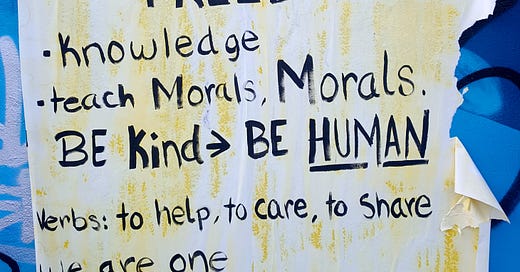 • Knowledge
• teach Morals, Morals.
BE Kind → BE HUMAN
Verbs: to help, to care, to Share
We are one